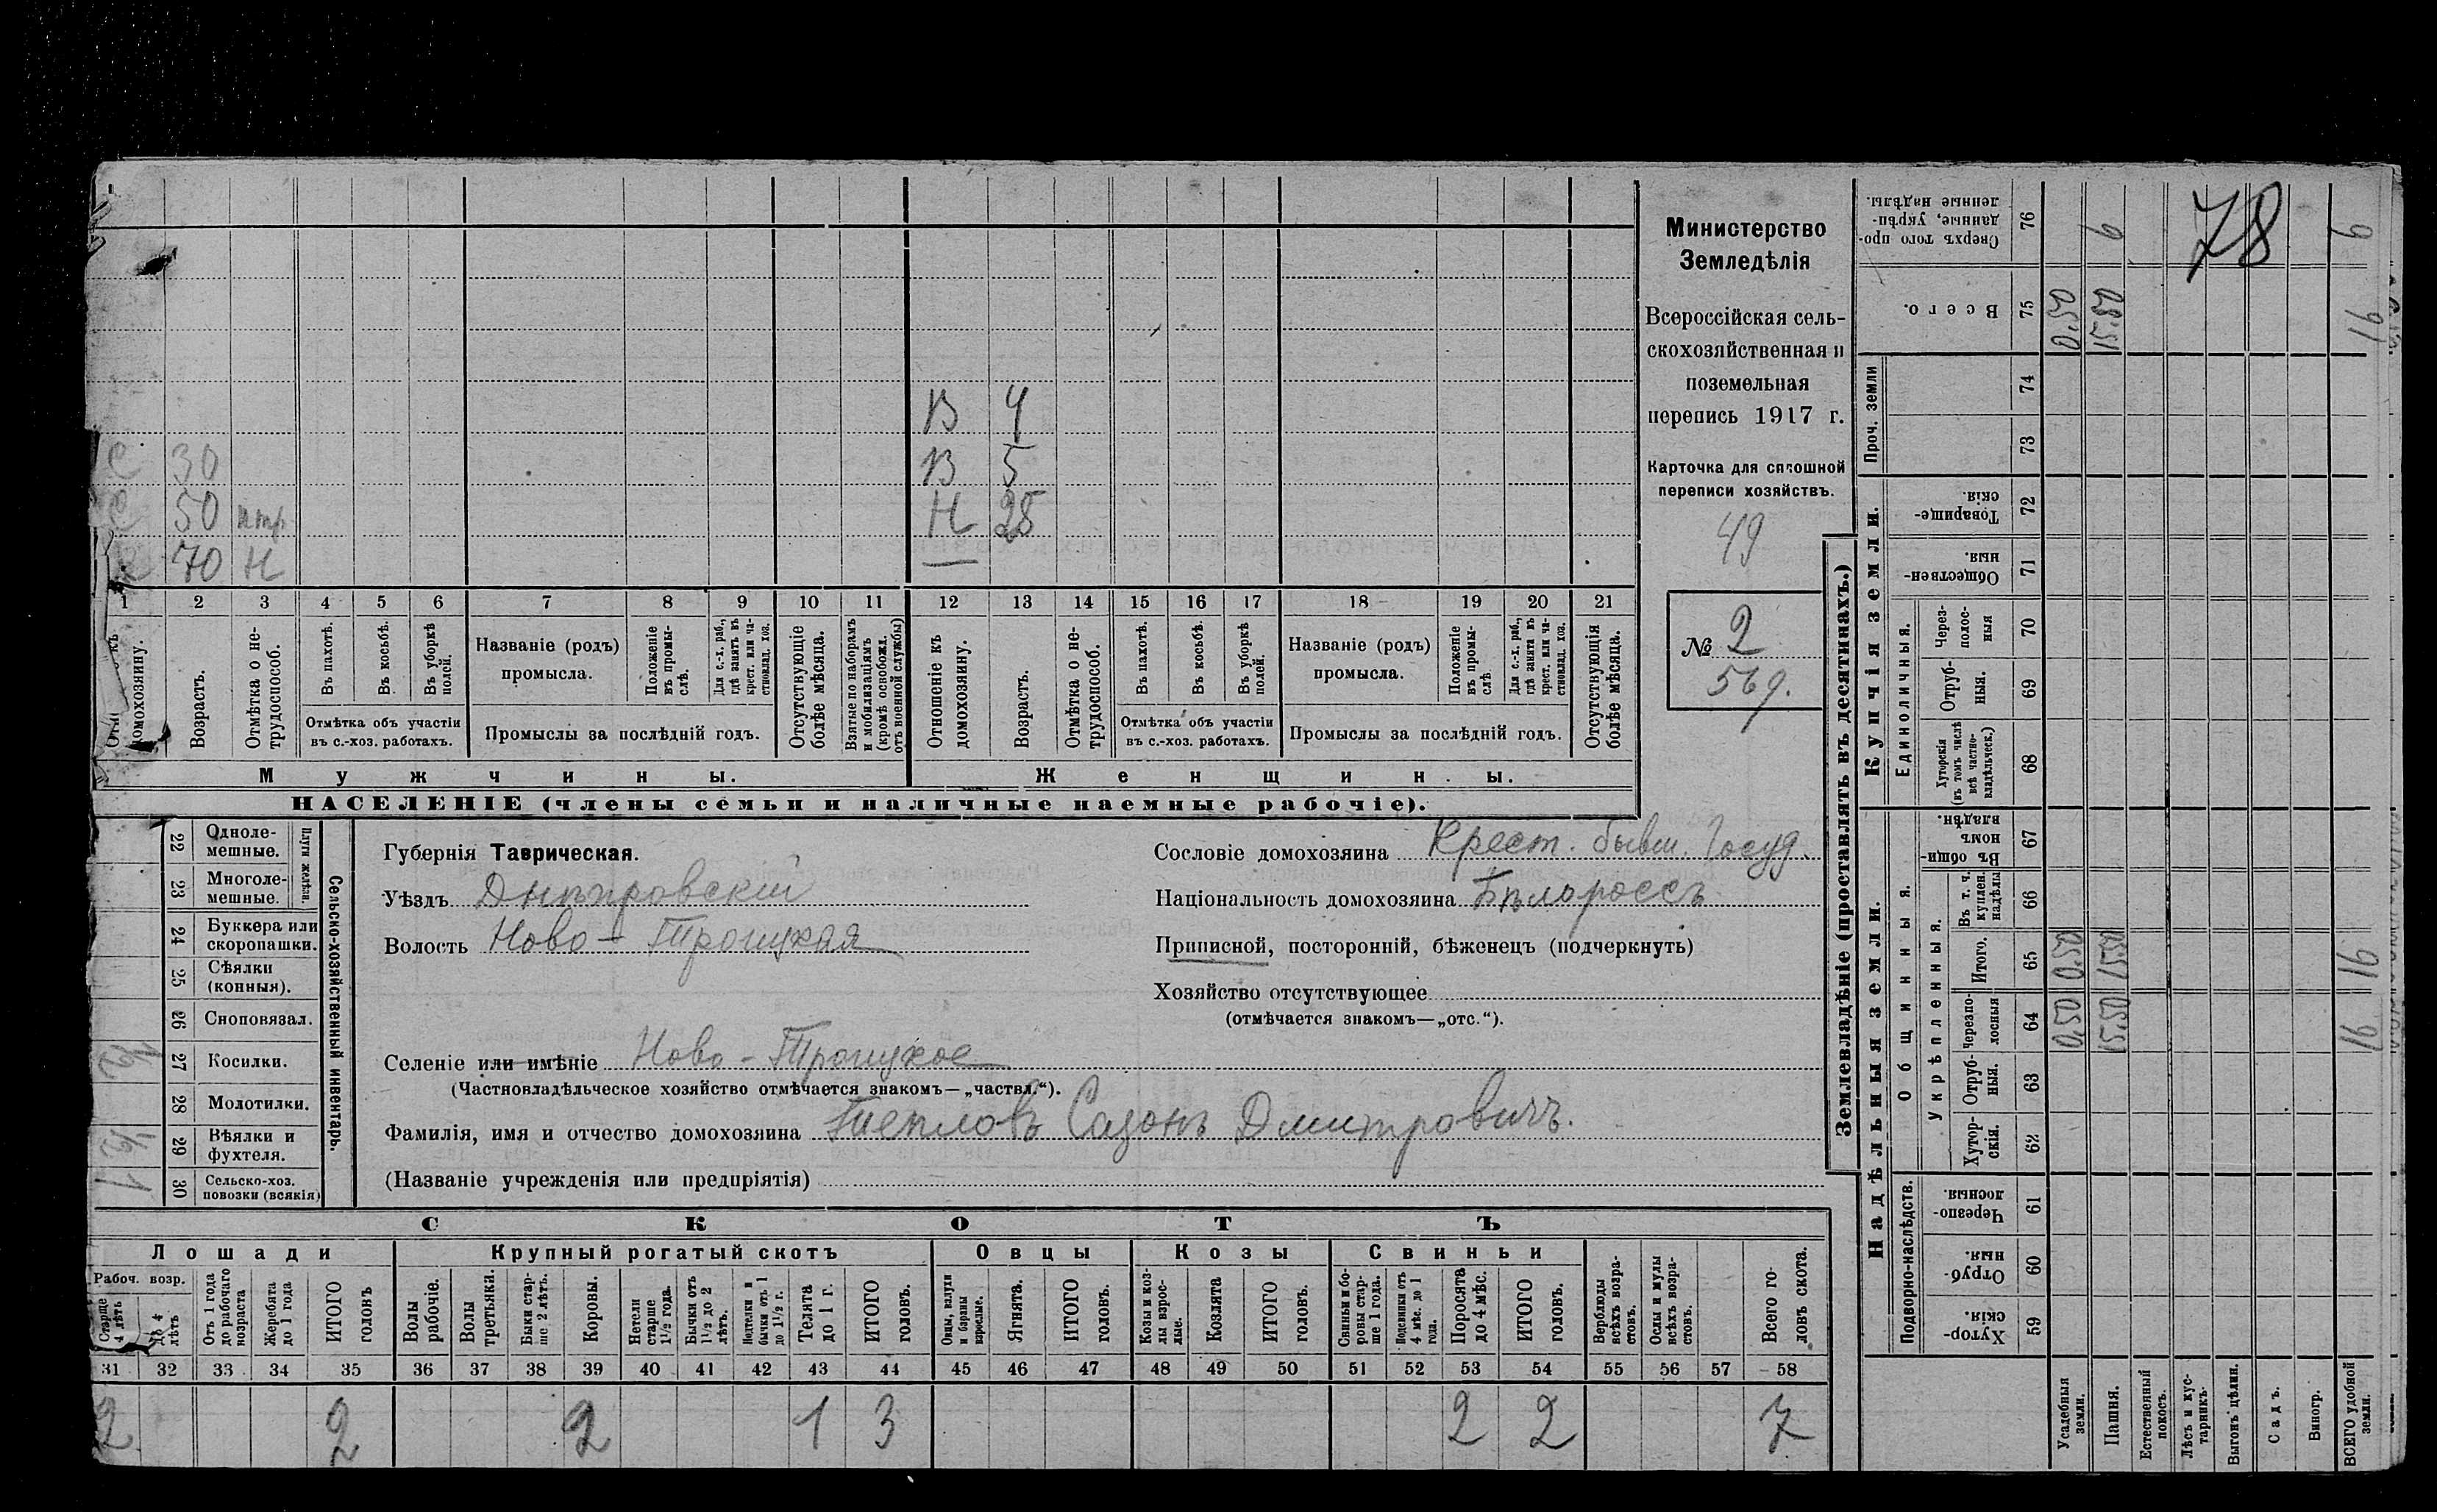 Министерство
Земледѣлія
Всероссійская сель-
скохозяйственная и
поземельная
перепись 1917 г.
Карточка для сплошной
переписи хозяйствъ.
49
№ 2
569.
78
В 4
С 30 В 5
С 50 нтр Н 28
70 Н
1 2 3 4 5 6 7 8 9 10 11 12 13 14 15 16 17 18 19 20 21
домохозяину.
Возрастъ.
Отмѣтка о не-
трудоспособ.
Въ пахотѣ.
Въ косьбѣ.
Въ уборкѣ
полой.
Отмѣтка объ участіи
въ с.-хоз. работахъ.
Названіе (родъ)
промысла.
Положеніе
въ промы-
слѣ.
Для с.-х. раб.,
гдѣ занятъ въ
крест. или ча-
стновлад. хоз.
Промыслы за послѣдній годъ.
Отсутствующіе
болѣе мѣсяца.
Взятые по наборамъ
и мобилизаціямъ
(кромѣ освобожд.
отъ военной службы)
Отношеніе къ
домохозяину.
Возрастъ.
Отмѣтка о не-
трудоспособ.
Въ пахотѣ.
Въ косьбѣ.
Въ уборкѣ
полой.
Отмѣтка объ участіи
въ с.-хоз. работахъ.
Названіе (родъ)
промысла.
Положеніе
въ промы-
слѣ
Для с.-х. раб.,
гдѣ занята въ
крест. или ча-
стновлад. хоз.
Промыслы за послѣдній годъ.
Отсутствующія
болѣе мѣсяца.
Мужчины. Женщины.
НАСЕЛЕНІЕ (члены семьи и наличные наемные рабочіе).
22 Одноле-
мешные.
23 Многоле-
мешные.
Плуги желѣзн.
24 Буккера или
скоропашки.
25 Сѣялки
(конныя).
26 Сноповязал.
27 Косилки.
28 Молотилки.
29 Вѣялки и
фухтеля.
1 30 Сельско-хоз.
повозки (всякія)
Сельско-хозяйственный инвентарь.
Губернія Таврическая.
Уѣздъ Днѣпровскій
Волость Ново-Троицкая
Селеніе или имѣніе Ново-Троицкое
(Частновладѣльческое хозяйство отмѣчается знакомъ—„частвл.“).
Фамилія, имя и отчество домохозяина Тепловъ Сазонъ Дмитровичъ.
(Названіе учрежденія или предпріятія)
Сословіе домохозяина Крест. бывш. Госуд.
Національность домохозяина Бѣлороссъ
Приписной, посторонній, бѣженецъ (подчеркнуть)
Хозяйство отсутствующее
(отмѣчается знакомъ—„отс.“).
СКОТЪ
Лошади Крупный рогатый скотъ Овцы Козы Свиньи
Рабоч. возр.
Старше
4 лѣтъ
До 4
лѣтъ
Отъ 1 года
до рабочаго
возраста
Жеребята
до 1 года
ИТОГО
головъ
Волы
рабочіе.
Волы
третьяки.
Быки стар-
ше 2 лѣтъ.
Коровы.
Нетели
старше
1½ года.
Бычки отъ
1½ до 2
лѣтъ.
Подтелки и
бычки отъ 1
до 1½ г.
Телята
до 1 г.
ИТОГО
головъ.
Овцы, валухи
и бараны
взрослые.
Ягнята.
ИТОГО
головъ.
Козы и коз-
лы взрос-
лые.
Козлята
ИТОГО
головъ.
Свиньи и бо-
ровы стар-
ше 1 года.
Подсвинки отъ
4 мѣс. до 1
года.
Поросята
до 4 мѣс.
ИТОГО
головъ.
Верблюды
всѣхъ возра-
стовъ.
Ослы и мулы
всѣхъ возра-
стовъ.
Всего го-
ловъ скота.
31 32 33 34 35 36 37 38 39 40 41 42 43 44 45 46 47 48 49 50 51 52 53 54 55 56 57 58
2 2 2 1 3 2 2 7
Землевладѣніе (проставлять въ десятинахъ.)
Надѣльныя земли. Купчія земли. Проч. земли
Подворно-наслѣдств.
Общинныя.
Укрѣпленныя.
Единоличныя.
59 Хутор-
скія.
60 Отруб-
ныя.
61 Черезпо-
лосныя
62 Хутор-
скія.
63 Отруб-
ныя.
64 Черезпо-
лосныя 0,50 15,50 16
65 Итого. 0,50 15,50 16
66 Въ т. ч.
куплен.
надѣлы
67 Въ общи-
номъ
владѣн.
68 Хуторскія
(въ томъ числѣ
всѣ частно-
владѣльческ.)
69 Отруб-
ныя.
70 Через-
полос-
ныя
71 Обществен-
ныя.
72 Товарище-
скія.
73
74
75 Всего. 0,50 15,50 16
76 Сверхъ того про-
данные, укрѣп-
ленные надѣлы. 6 6
Усадебныя
земли.
Пашня.
Естественный
покосъ.
Лѣсъ и кус-
тарникъ.
Выгонъ цѣлин.
Садъ.
Виногр.
ВСЕГО удобной
земли.